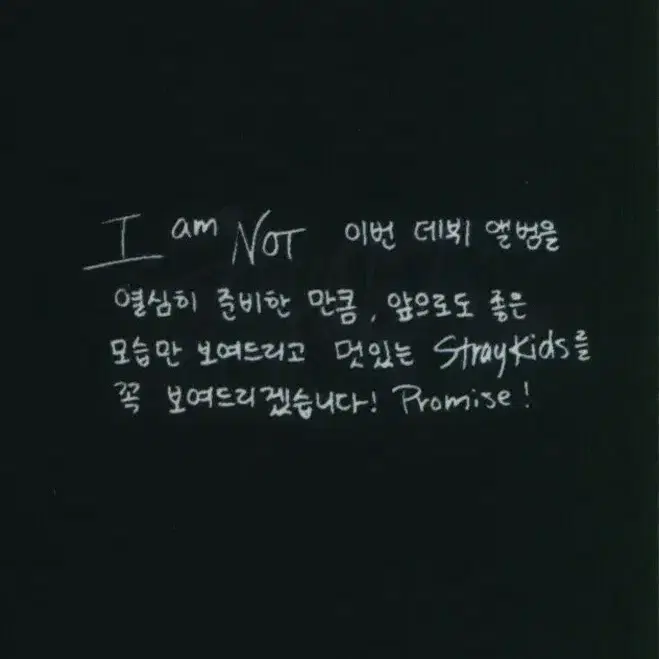 I am NOT 이번 데뷔 앨범을
열심히 준비한 만큼, 앞으로도 좋은
모습만 보여드리고 멋있는 StrayKids를
꼭 보여드리겠습니다! Promise!